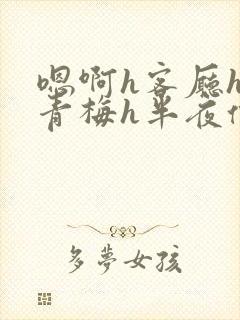 嗯啊h客厅h
青梅h半夜偷
多夢女孩